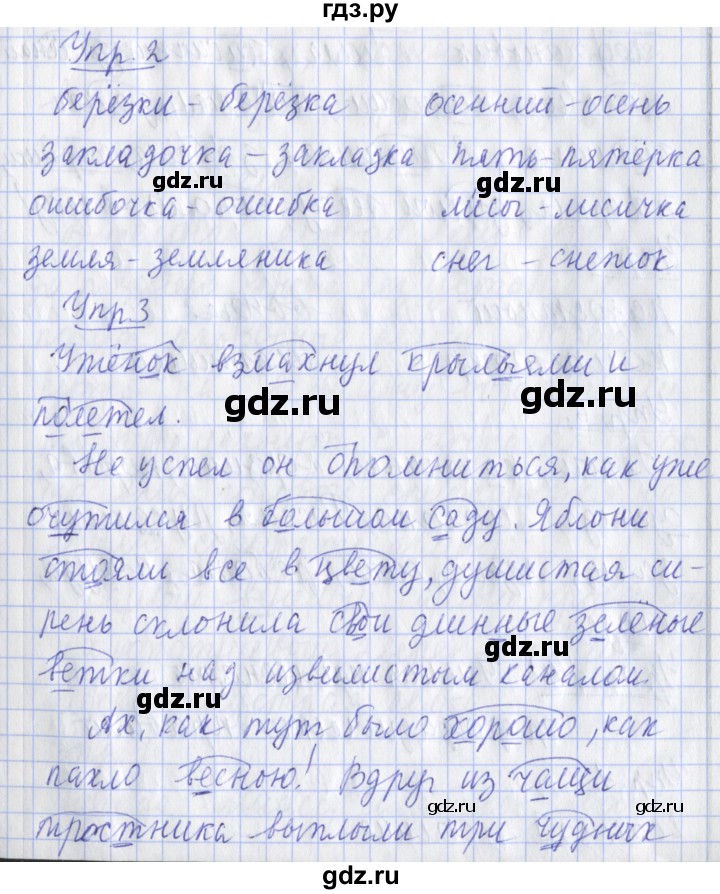 гдз.ру
Упр. 2
берёзки - берёзка осенний - осень
закладочка - закладка пять - пятёрка
gdz.ru gdz.ru
ошибочка - ошибка лисы - лисичка
земля - земляника снег - снежок
Упр. 3
Утёнок взмахнул крыльями и
gdz.ru gdz.ru
полетел.
Не успел он опомниться, как уже
очутился в большом саду. Яблони
стояли все в цвету, душистая си-
рень склонила свои длинные зеленые
gdz.ru
ветки над извилистым каналом.
gdz.ru
Ах, как тут было хорошо, как
пахло весною! Вдруг из чащи
gdz.ru gdz.ru
тростника выплыли три чудных
gdz.ru